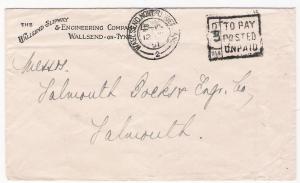 THE
WALLSEND SLIPWAY
& ENGINEERING COMPANY
WALLSEND-ON-TYNE
2
TO PAY
POSTED
UNPAID
Messrs.
Falmouth Docks & Engr. Co,
Falmouth.